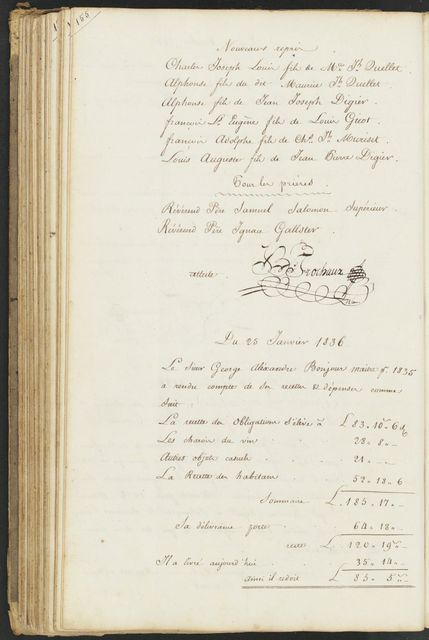 155
Nouveaux reçus
Charles Joseph Louis fils de Mce Jh Quellet.
Alphonse fils du dit Maurice Jh Quellet.
Alphonse fils de Jean Joseph Digier.
françois Ls Eugène fils de Louis Girot.
françois Adolphe fils de Chs Jh Muriset.
Louis Auguste fils de Jean Pierre Digier.
Pour les prières.
Révérend Père Samuel Salomon Supérieur.
Révérend Père Ignace Gallster.
atteste
Frochaux
Du 25 Janvier 1836
Le Sieur George Alexandre Bonjour maitre pr 1835
a rendu compte de ses recettes & dépenses comme
suit:
La recette des obligations s'élève à L 83. 10s. 6d
Les charois du vin 28. 8. -
Autres objets casuels 21. - -
La Recette des habitans 52. 18. 6
Sommaire L 185. 17. -
Sa délivrance porte 64. 18. -
reste L 120. 19s. -
Il a livré aujourd'hui 35. 14. -
ainsi il redoit L 85. 5s. -